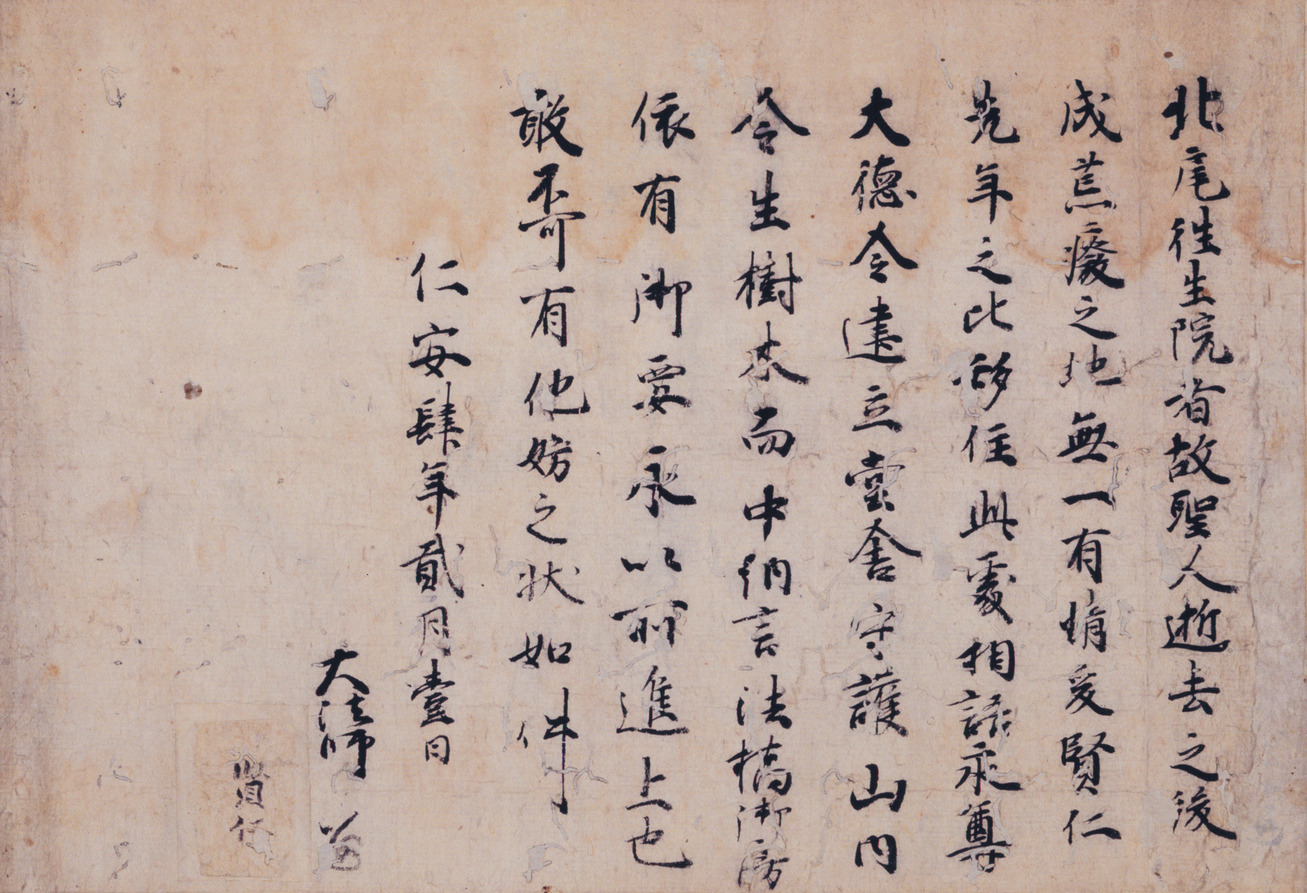 北尾往生院者故聖人逝去之後
成荒癈之地無一有情爰賢仁
先年之比移住此處相語永尊
大德令建立堂舍守護山内
令生樹木而中納言法橋御房
依有御要永以所進上也
敢不可有他妨之状如件
仁安肆年貳月壹日
大法師
賢仁